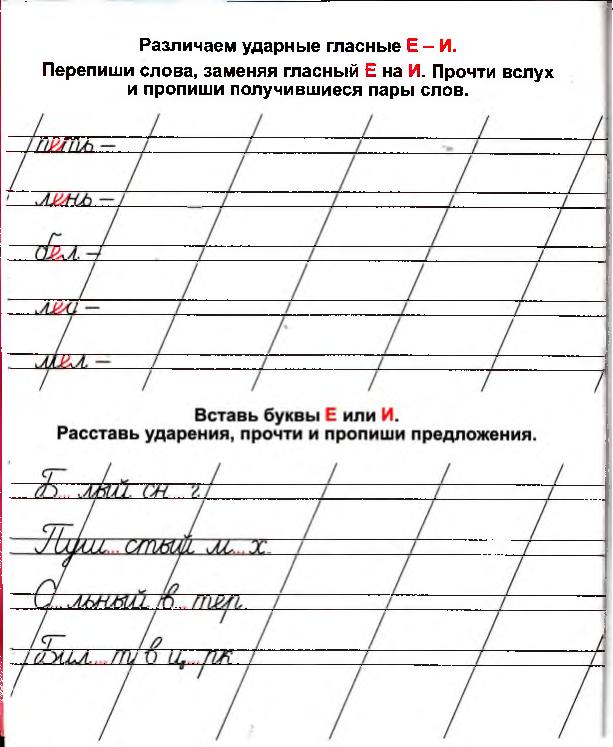 Различаем ударные гласные Е – И.
Перепиши слова, заменяя гласный Е на И. Прочти вслух
и пропиши получившиеся пары слов.
петь –
лень –
бел –
лей –
мел –
Вставь буквы Е или И.
Расставь ударения, прочти и пропиши предложения.
Б...лый сн...г.
Пуш...стый м...х.
С...льный в...тер.
Бил...т в ц...рк.